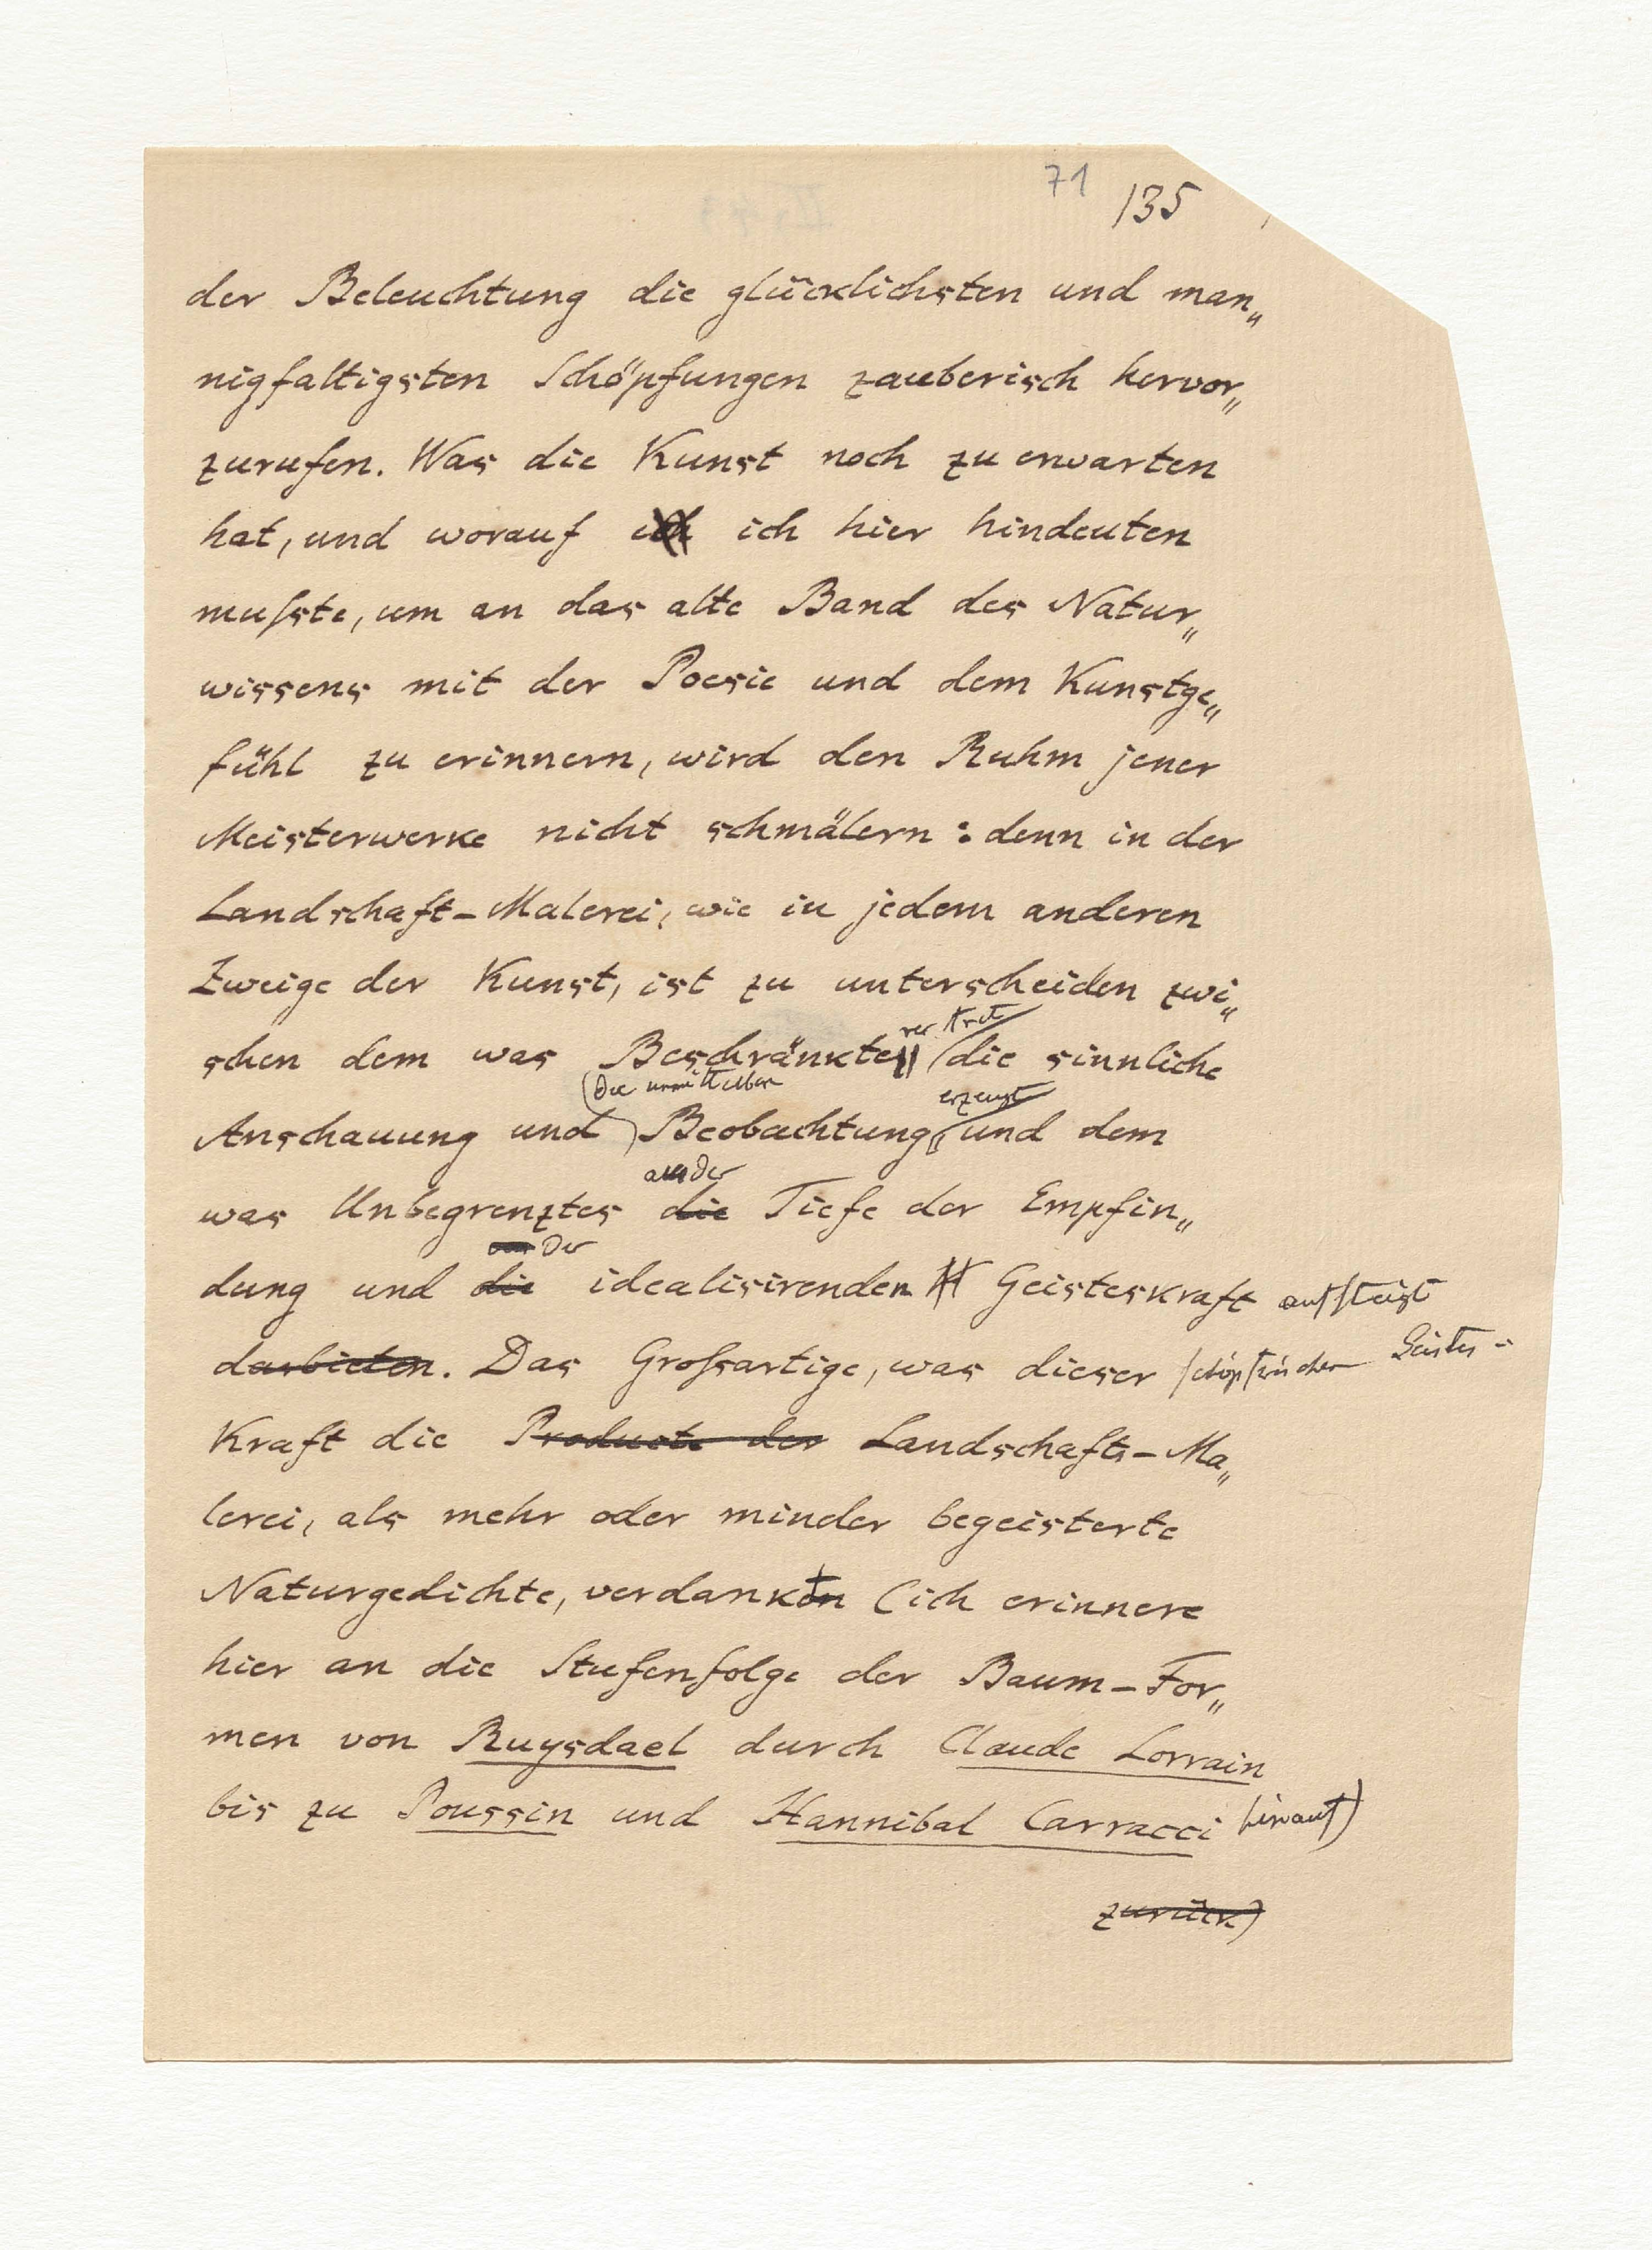 71 135
der Beleuchtung die glücklichsten und man„
nigfaltigsten Schöpfungen zauberisch hervor„
zurufen. Was die Kunst noch zu erwarten
hat, und worauf ich ich hier hindeuten
muſste, um an das alte Band des Natur„
wissens mit der Poesie und dem Kunstge„
fühl zu erinnern, wird den Ruhm jener
Meisterwerke nicht schmälern: denn in der
Landschaft-Malerei, wie in jedem anderen
Zweige der Kunst, ist zu unterscheiden zwi„
schen dem was Beschränktes die sinnliche
die unmittelbare erzeugt
Anschauung und Beobachtung und dem
aus der
was Unbegrenztes die Tiefe der Empfin„
der
dung und die idealisirenden Geisteskraft aufsteigt
darbieten. Das Groſsartige, was dieser schöpferischen Geistes-
Kraft die Producte der Landschafts-Ma„
lerei, als mehr oder minder begeisterte
Naturgedichte, verdankt (ich erinnere
hier an die Stufenfolge der Baum-For„
men von Ruysdael durch Claude Lorrain
bis zu Poussin und Hannibal Carracci hinauf)
zurück)